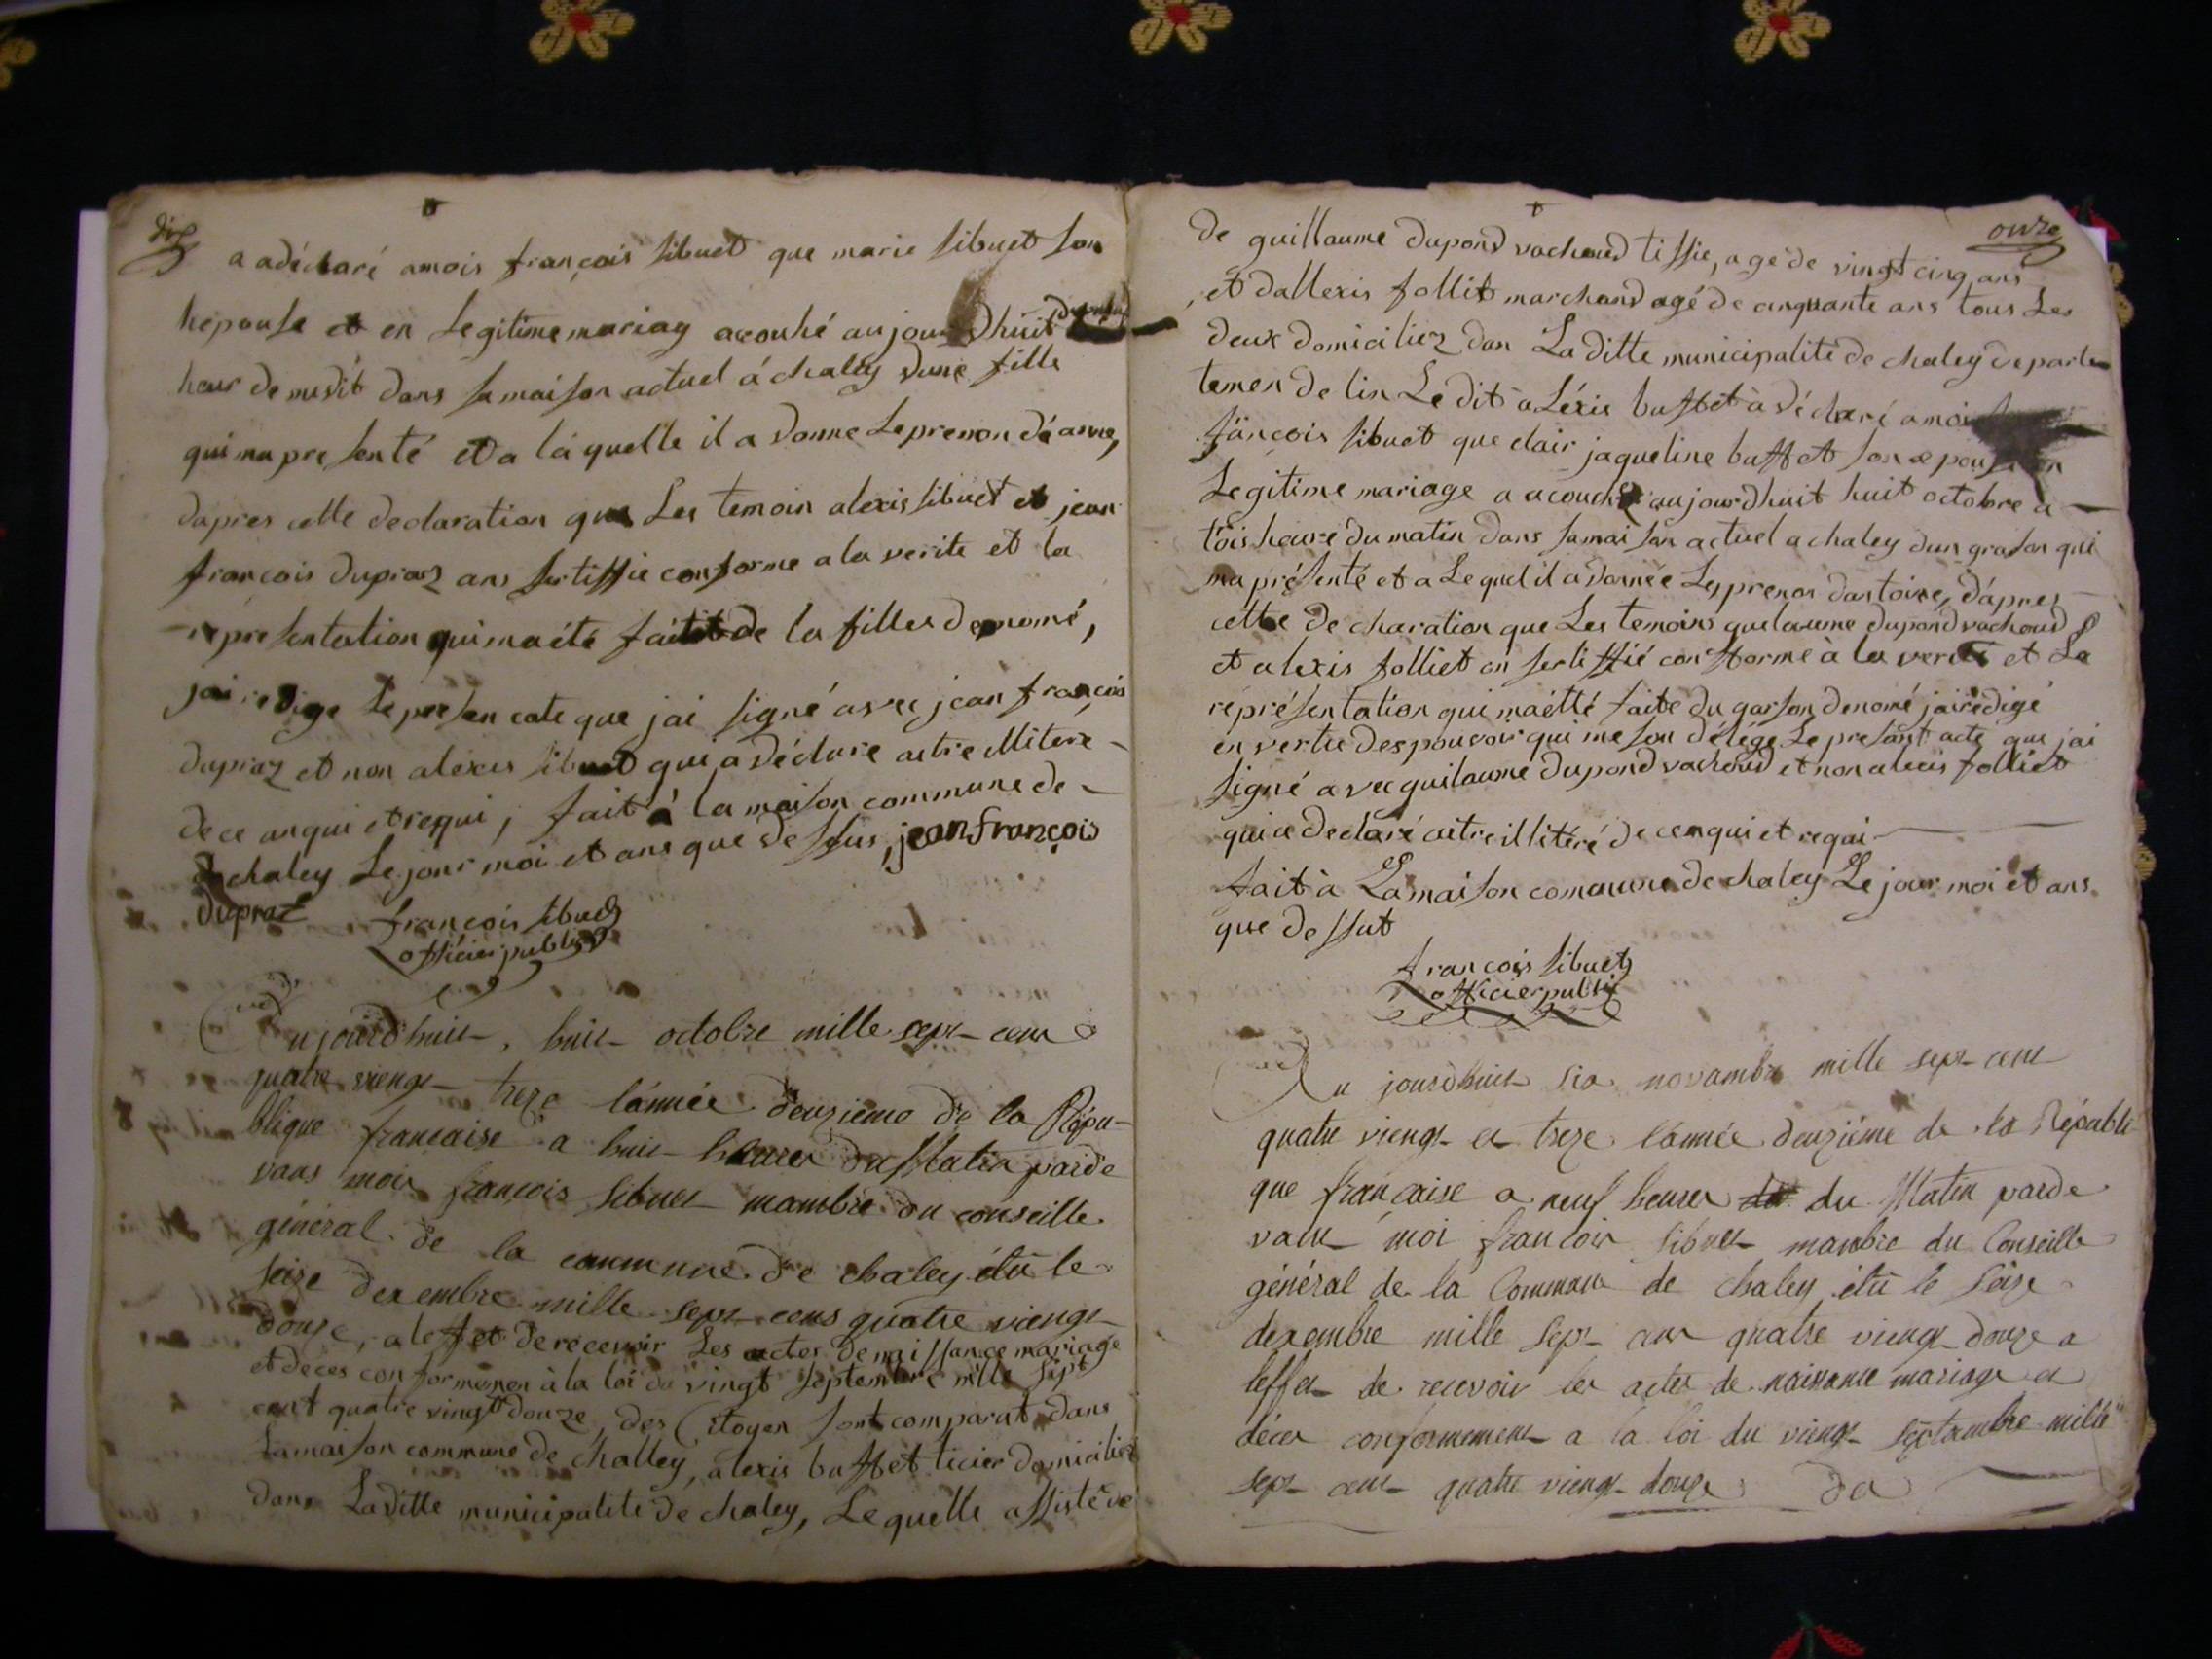 dix
a adéclaré amois françois sibuet que marie sibuet son
hépouse et en Legitime mariag acouhé aujourdhuit
heur de midit dans sa maison actuel á chaley dune fille
qui ma presenté et a la quelle il a donne Le prenon dé anne,
dapres cette declaration que Les temoin alexis sibuet et jean
françois dupraz ans sertiffie conforme a la verite et la
représentation qui ma été fait de la filles denomé,
jai redige Le presen cate que jai signé avec jean françois
dupraz et non alexis sibuet qui a déclare aitre illitere
de ce anqui et requi, fait à la maison commune de
de chaley Le jour moi et ans que dessus, jean françois
dupraz françois sibuet
officier public
Aujourdhuit, huit octobre mille sept cent
quatre viengt treze l'année deuzieme de la Répu-
blique francaise a huit heures du Matin parde
vans moi françois sibuet mambre du conseille
général de la commune de chaley élû le
seize dexembre mille sept cens quatre viengt
douze, a leffet de recevoir Les actes de naissance mariage
et déces conformémen à la loi du vingt septembre mille sept
cent quatre vingt douze, des Citoyen sont comparut dans
La maison commune de challey, alexis buffet ticier domiciliez
dans La ditte municipalité de chaley, Le quelle assisté de
onze
de guillaume dupond vachoud tissie, agé de vingt cinq ans
et dallexis follit marchand agé de cinquante ans tous Les
deux domiciliez dan La ditte municipalité de chaley departe
temen de lin Le dit aléxis buffet à déclaré a moi
françois sibuet que clair jaqueline buffet son epouse en
Legitime mariage a acouché aujourdhuit huit octobre a
tois heure du matin dans sa maison actuel a chaley dun grason qui
ma présenté et a Le quel il a donnée Les prenon dantoine, dápres
cette de charation que Les temoins guelaume dupond vachoud
et alexis folliet on sertiffié conforme à la verité et La
représentation qui ma étté faite du garson denomé jai rédigé
en vertu des pouvoir qui me son délégé Le presant acte que jai
signé avec guilaume dupond vachoud et non alexis folliet
qui a declaré aitre illitéré de ce anqui et reqai
fait à La maison commune de chaley Le jour moi et ans
que dessut
françois sibuet
officier public
Au jourdhuit six novambre mille sept cent
quatre viengt et treze l'année deuziéme de la Républi
que française a neuf heures du Matin parde
vant moi francois sibuet mambre du Conseille
général de la Commune de chaley élû le Seize
dexembre mille Sept cens quatre viengt douze a
leffet de recevoir les actes de naissance mariage et
déces conformement a la loi du viengt septambre mille
sept cent quatre viengt douze